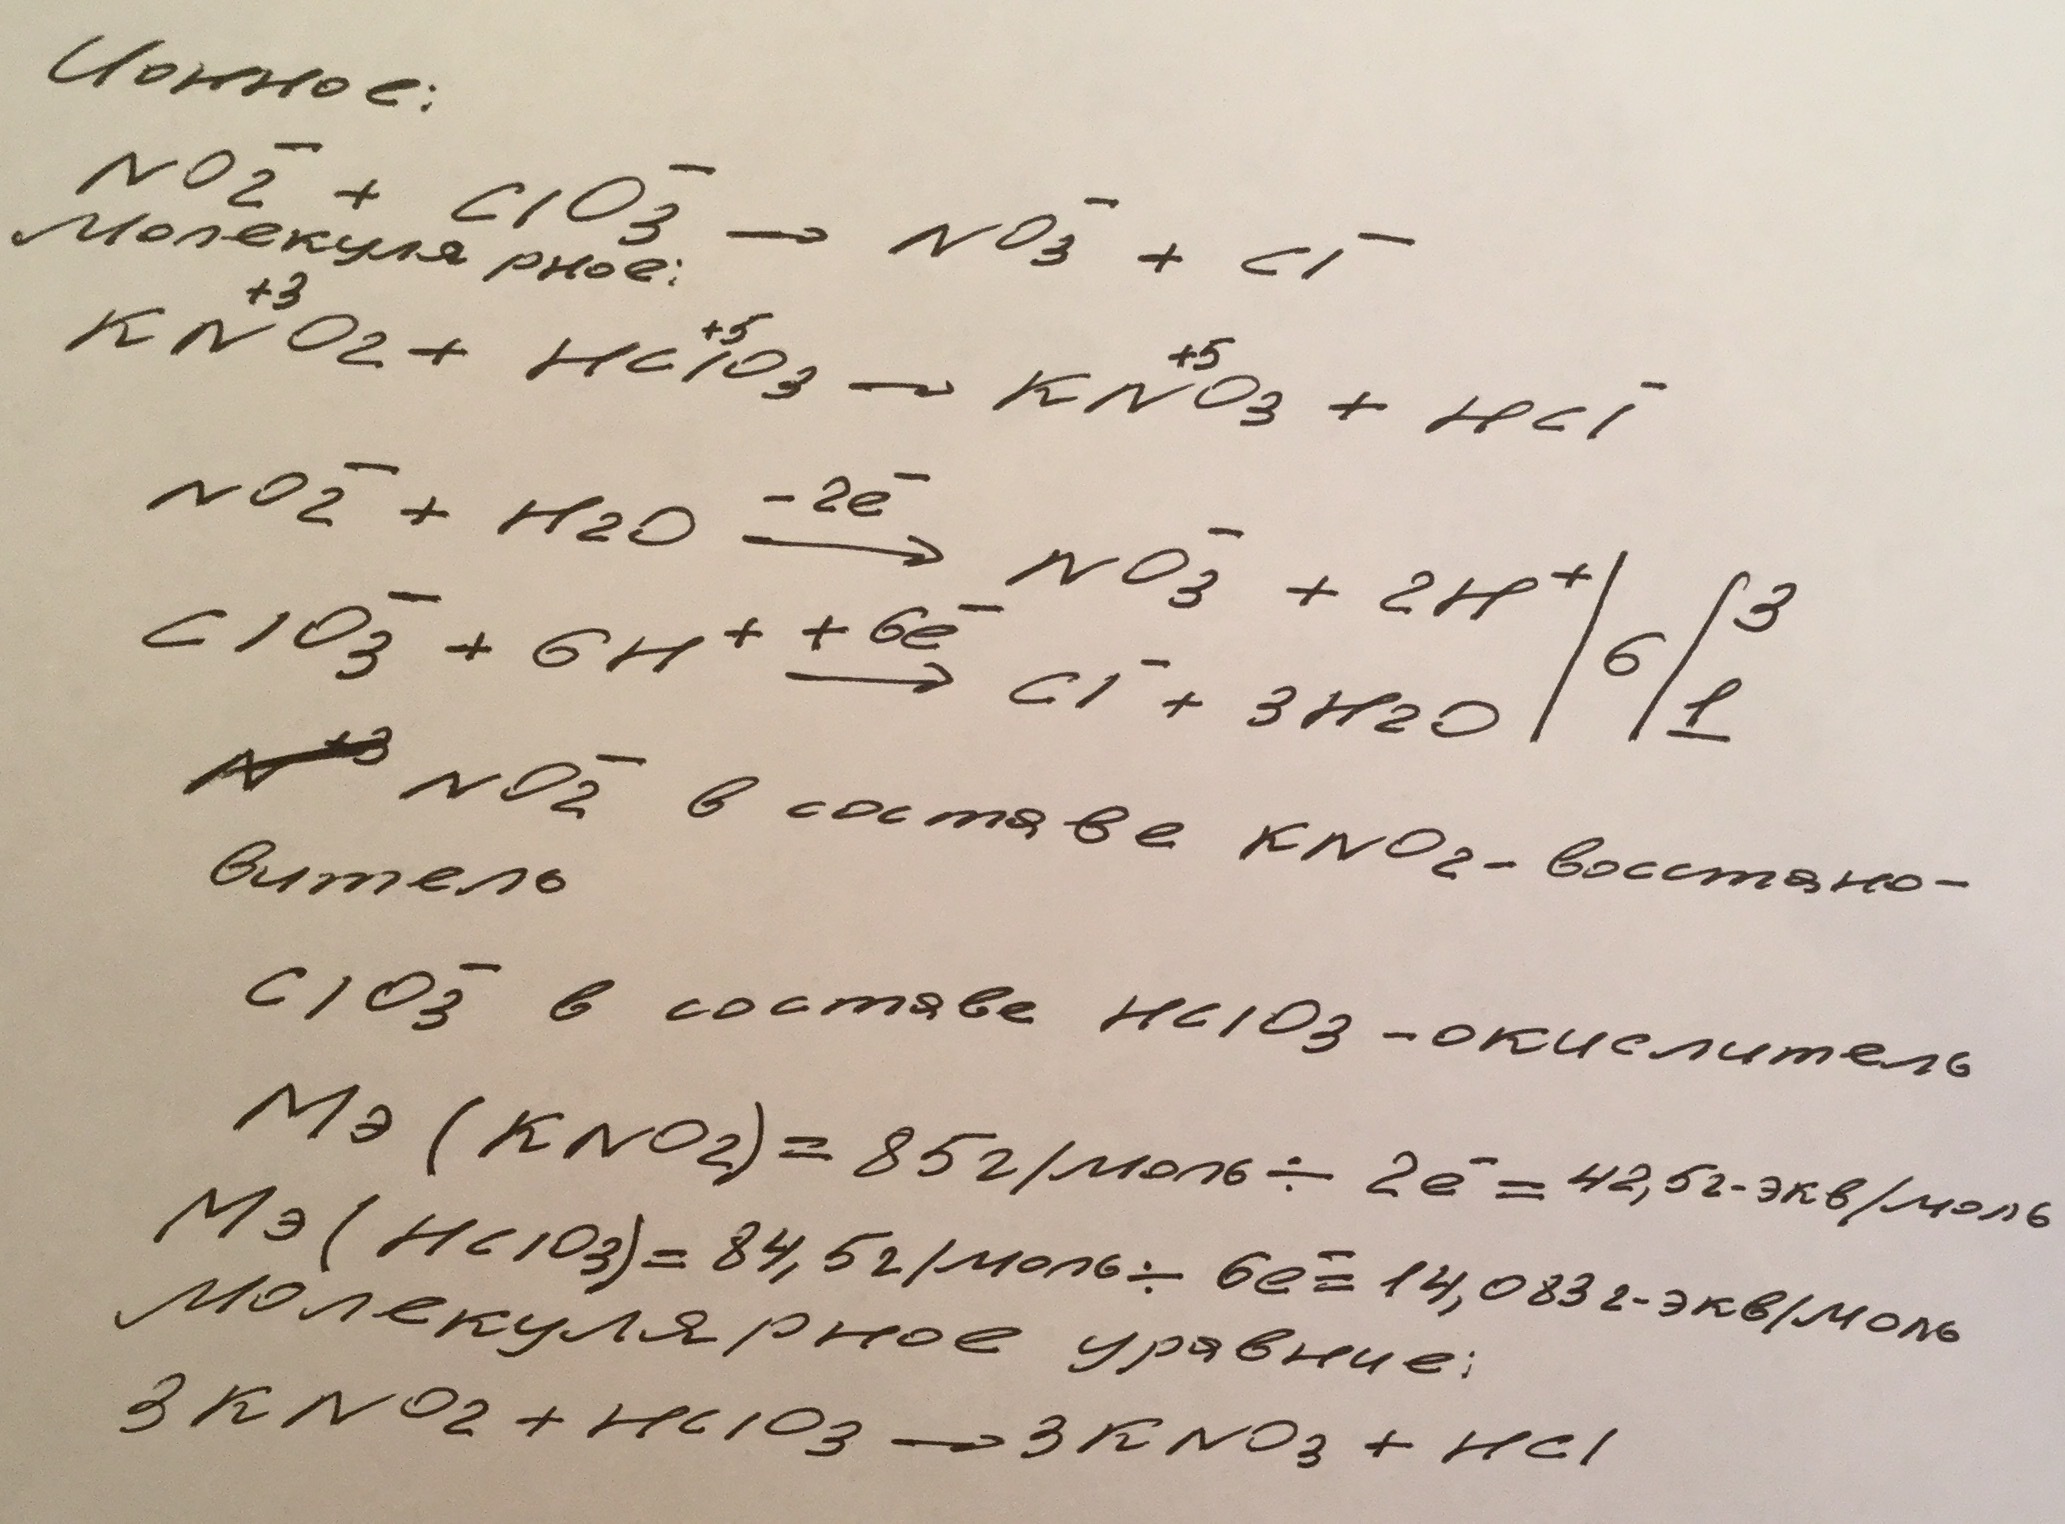 Ионное:
NO2⁻ + ClO3⁻ → NO3⁻ + Cl⁻
Молекулярное:
KN⁺³O2 + HCl⁺⁵O3 → KN⁺⁵O3 + HCl⁻
NO2⁻ + H2O —(-2e⁻)→ NO3⁻ + 2H⁺ | 6 | 3
ClO3⁻ + 6H⁺ —(+6e⁻)→ Cl⁻ + 3H2O | | 1
NO2⁻ в составе KNO2 - восстано-
витель
ClO3⁻ в составе HClO3 - окислитель
Мэ (KNO2) = 85г/моль ÷ 2e⁻ = 42,5г-экв/моль
Мэ (HClO3) = 84,5г/моль ÷ 6e⁻ = 14,083г-экв/моль
Молекулярное уравние:
3KNO2 + HClO3 → 3KNO3 + HCl